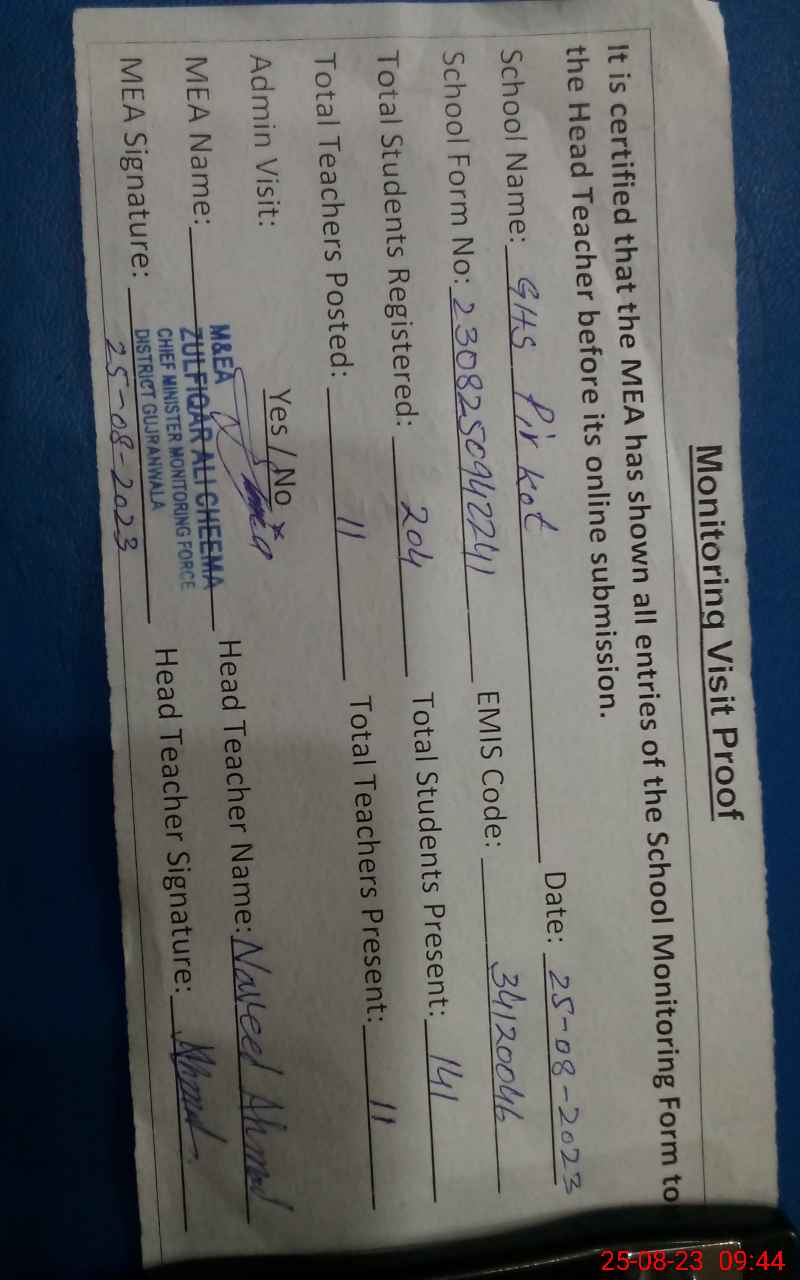 Monitoring Visit Proof
It is certified that the MEA has shown all entries of the School Monitoring Form to
the Head Teacher before its online submission.
School Name: GHS Pirkot Date: 25-08-2023
School Form No: 2308250942241 EMIS Code: 34120046
Total Students Registered: 204 Total Students Present: 141
Total Teachers Posted: 11 Total Teachers Present: 11
Admin Visit: Yes / No
MEA Name: M&EA
ZULFIQAR ALI CHEEMA
CHIEF MINISTER MONITORING FORCE
DISTRICT GUJRANWALA
Head Teacher Name: Naveed Ahmad
MEA Signature: 25-08-2023 Head Teacher Signature: Ahmad
25-08-23 09:44